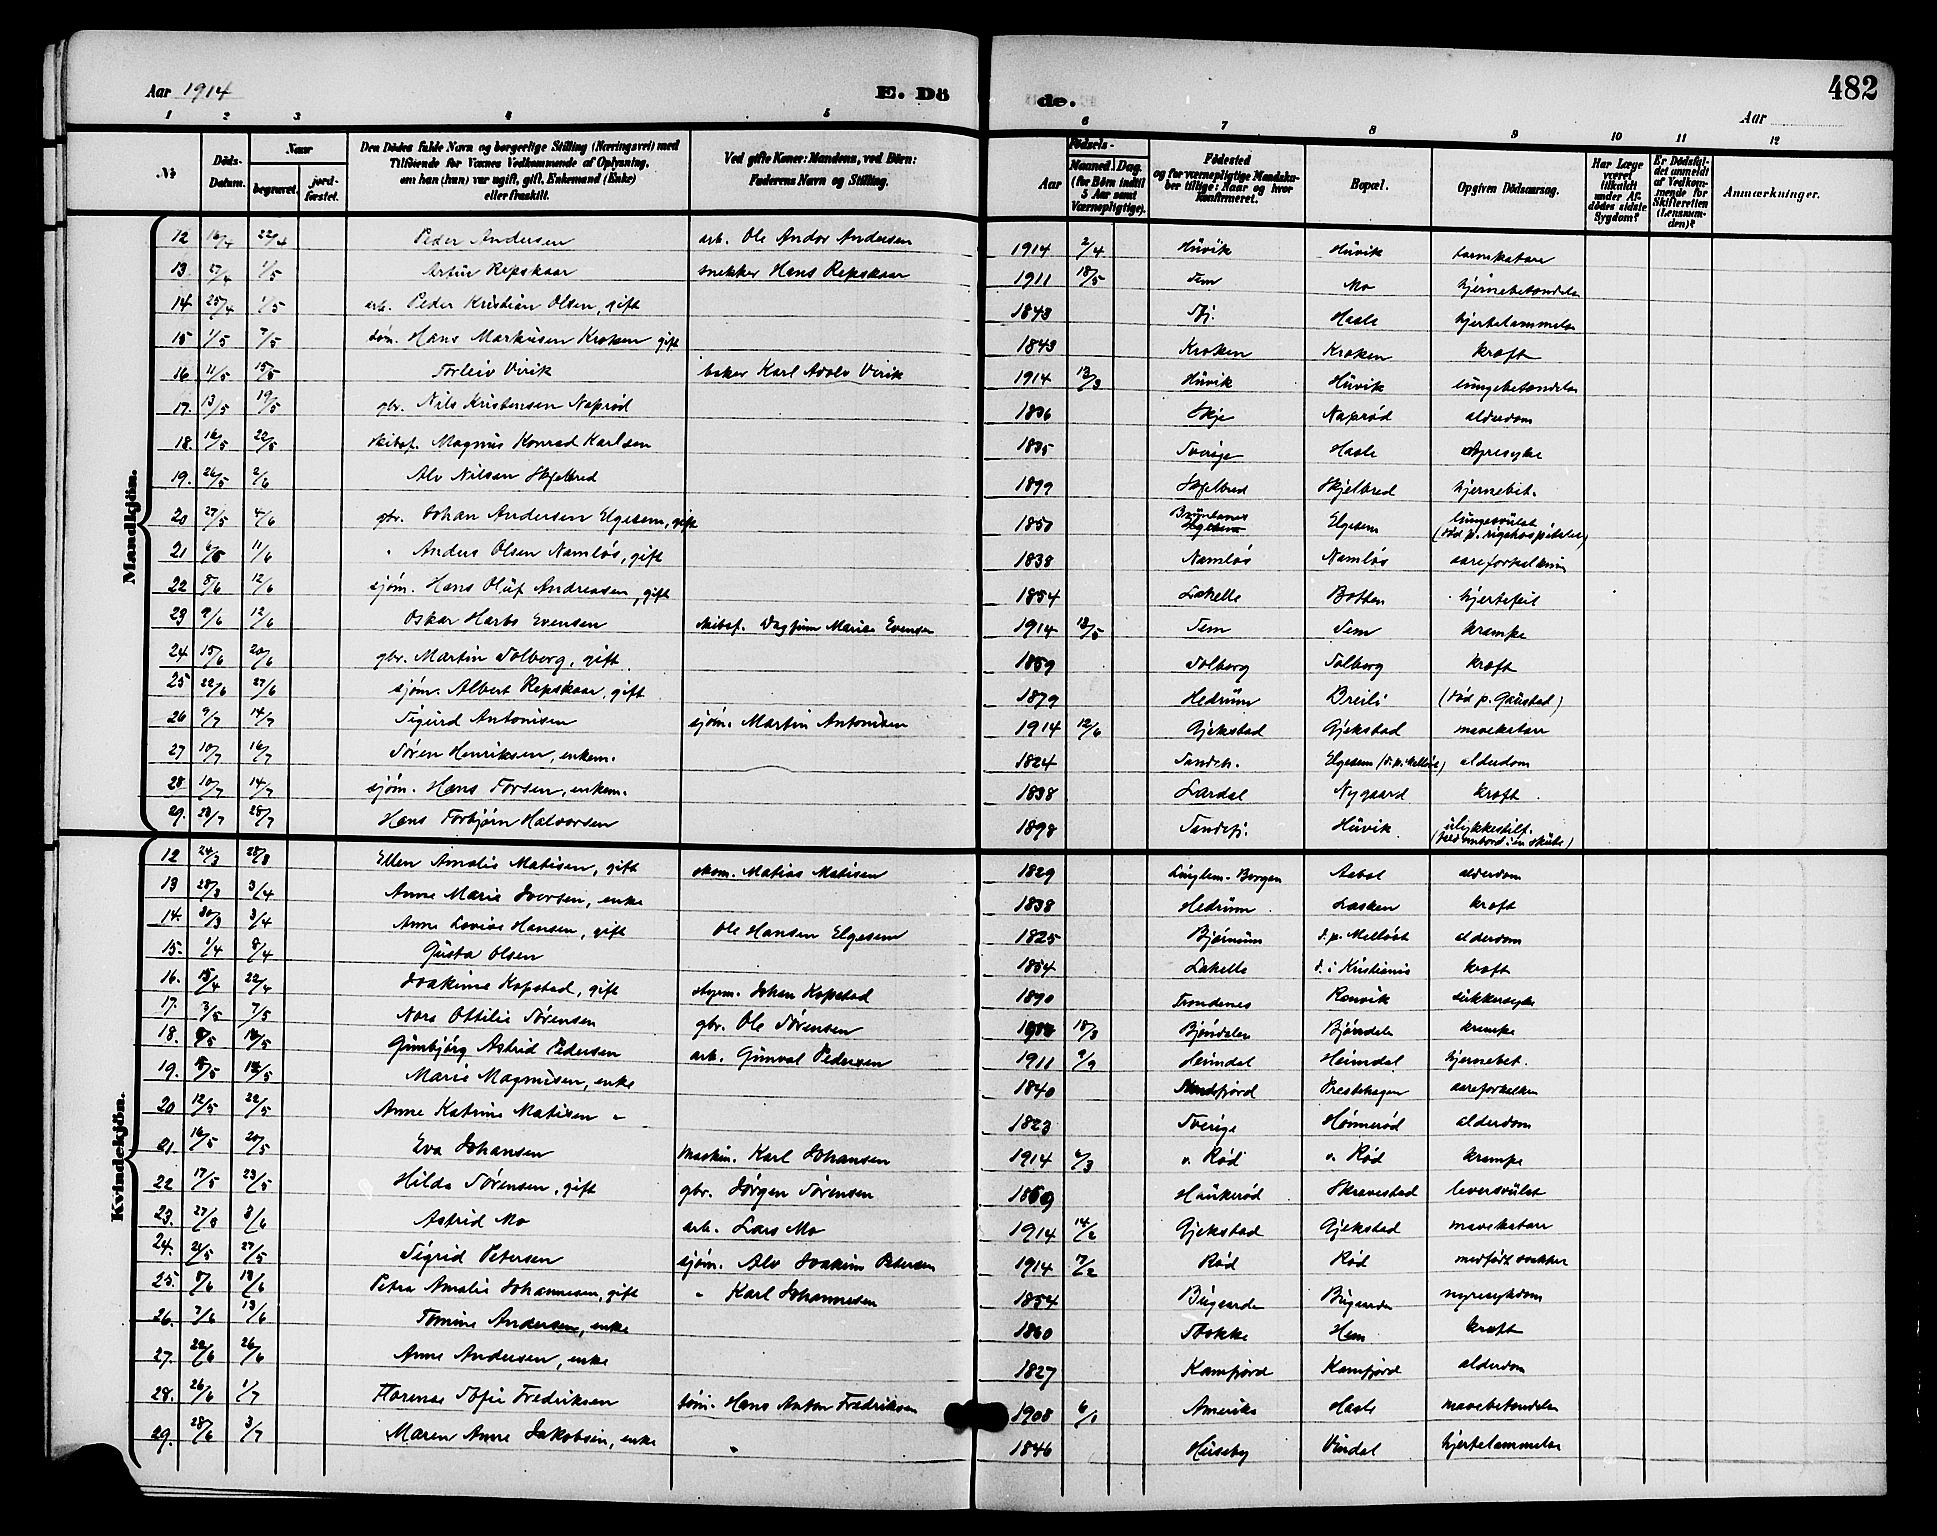 Aar 1914
E. Dö
de.
482
Aar
1 2 3 4 5 6 7 8 9 10 11 12
№
Döds-Datum.
Naar
begravet.
jord-fæstet.
Den Dödes fulde Navn og borgerlige Stilling (Næringsvei) med Tilföiende for Voxnes Vedkommende af Oplysning, om han (hun) var ugift, gift, Enkemand (Enke) eller fraskilt.
Ved gifte Koner: Mandens, ved Börn: Faderens Navn og Stilling.
Födsels-
Aar
Maaned. Dag. (for Börn indtil 5 Aar samt Værnepligtige).
Födested og for værnepligtige Mandskaber tillige: Naar og hvor konfirmeret.
Bopæl.
Opgiven Dödsaarsag.
Har Læge været tilkaldt under Afdödes sidste Sygdom?
Er Dödsfaldet anmeldt af Vedkommende for Skifteretten (Lensmanden)?
Anmærkninger.
Mandkjön.
12 16/4 22/4 Peder Andersen arb. Ole Andor Andersen 1914 2/4 Huvik Huvik tarmkatarr
13. 27/4 1/5 Artur Repskaar snekker Hans Repskaar 1911 18/5 Fem Mo hjernebetændelse
14 25/4 1/5 arb. Peder Kristian Olsen, gift 1843 Haslе hjertelammelse
15 1/5 7/5 tøm. Hans Markusen Kroken gift 1843 Kroken Kroken kræft
16 11/5 15/5 Torleiv Virik baker Karl Adolv Virik 1914 12/3 Huvik Huvik lungebetændelse
17. 13/5 19/5 gbr. Nils Kristensen Naprød 1836 Skje Naprød alderdom
18. 16/5 22/5 skibsf. Magnus Konrad Karlsen 1835 Sverige Hasle nyresyke
19. 26/5 2/6 Alv Nilsen Skjelbred 1899 Skjelbred Skjelbred hjernebet.
20 27/5 4/6 gbr. Johan Andersen Elgesem, gift 1857 Elgesem lungesvulst (død p. rigshospitalet)
21 6/6 11/6 " Anders Olsen Namløs, gift 1838 Namløs Namløs aareforkalkning
22 8/6 12/6 sjøm. Hans Oluf Andreasen, gift 1854 Lahelle Botten hjertefeil
23 9/6 12/6 Oskar Harbo Evensen skibsf. Dagfinn Marius Evensen 1914 18/5 Fem Fem krampe
24 15/6 20/6 gbr. Martin Solberg, gift 1859 Solberg Solberg kræft
25 22/6 27/6 sjøm. Albert Repskaar, gift 1879 Hedrum Breili (død p. Gaustad)
26 9/7 14/7 Sigurd Antonisen sjøm. Martin Antonisen 1914 12/6 Gjekstad Gjekstad mavekatarr
27 10/7 16/7 Søren Henriksen, enkem. 1824 Sandeh. Elgesem (d. p. Melløst) alderdom
28 10/7 14/7 sjøm. Hans Torsen, enkem. 1838 Lardal Nygaard kræft
29. 23/7 28/7 Hans Torbjørn Halvorsen 1898 Sandefj. Huvik ulykkestilf. (ombord i en skute)
Kvindekjön.
12 24/3 28/3 Ellen Amalie Matisen, gift skom. Matias Matisen 1829 Linglem-Borgen alderdom
13 28/3 3/4 Anne Marie Iversen, enke 1838 Hedrum Lasken kræft
14. 30/3 3/4 Anne Lovise Hansen, gift Ole Hansen Elgesem 1825 Bjørnum d. p. Melløst alderdom
15. 1/4 8/4 Gusta Olsen 1854 Lahelle d. i Kristiania kræft
16. 15/4 22/4 Joakime Kopstad, gift styrm. Johan Kopstad 1890 Trondenes Ranvik sukkersyke
17. 3/5 7/5 Nora Ottilie Sørensen gbr. Ole Sørensen 18/8 Bjøndalen Bjøndalen krampe
18. Gunbjørg Astrid Pedersen arb. Gunval Pedersen 1911 9/9 Heimdal Heimdal hjernebet.
19. Marie Magnusen, enke 1840 Prestehagen aareforkalkn
20 12/5 22/5 Anne Katrine Matisen " 1823 Sverige Hønnerød alderdom
21. 16/5 20/5 Eva Johansen maskin. Karl Johansen 1914 6/3 v. Rød v. Rød krampe
22 17/5 23/5 Hilda Sørensen, gift gbr. Jørgen Sørensen 1869 Haukerød Skravestad leversvulst
23. 27/5 3/6 Astrid Mo arb. Lars Mo 1914 14/2 Gjekstad Gjekstad mavekatarr
24. 21/5 27/5 Sigrid Petersen sjøm. Alv Joakim Petersen 1914 7/2 Rød Rød medfødt svakhet
25. 8/6 13/6 Petra Amalie Johannesen, gift " Karl Johannesen 1854 Bugaarden Bugaarden nyresykdom
26. 7/6 13/6 Tomine Andersen, enke 1860 Stokke Hem kræft
27. 22/6 26/6 Anne Andersen, enke 1827 Kamfjord Kamfjord alderdom
28. 26/6 1/7 Florence Sofie Fredriksen tøm. Hans Anton Fredriksen 1908 6/1 Amerika Hasle mavebetændelse
29. 28/6 3/7 Maren Anne Jakobsen, enke 1846 Huseby Vindal hjertelammelse